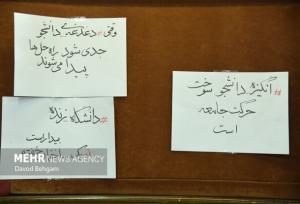 وقتی #دغدغه‌ی دانشجو
جدی شود راه حل‌ها
پیدا می‌شوند
#انگیزه دانشجو سوخت
حرکت جامعه
است
#دانشگاه زنده
بیدار است
MEHR NEWS AGENCY
Davod Behgam